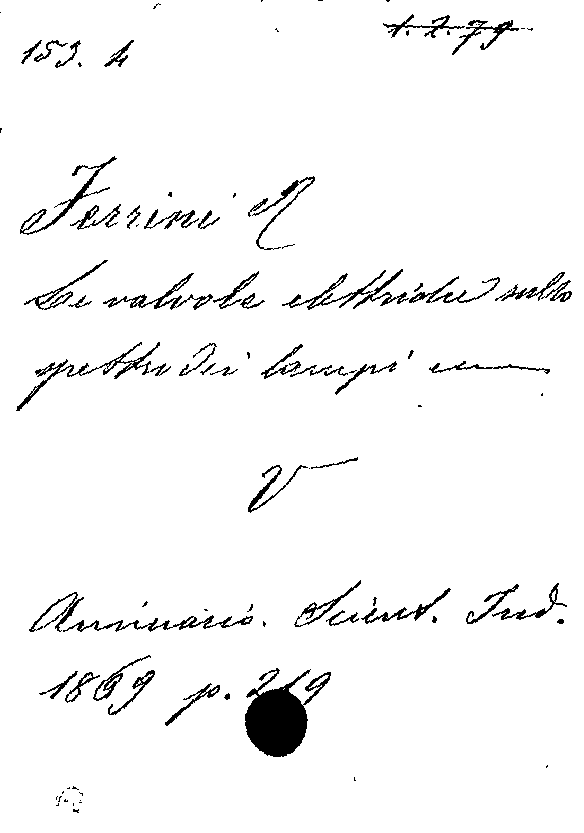 153. 4
1. 2. 79
Ferrini R
Le valvole elettriche sullo
spettro dei lampi
V
Annuario. Scient. Ind.
1869 p. 219